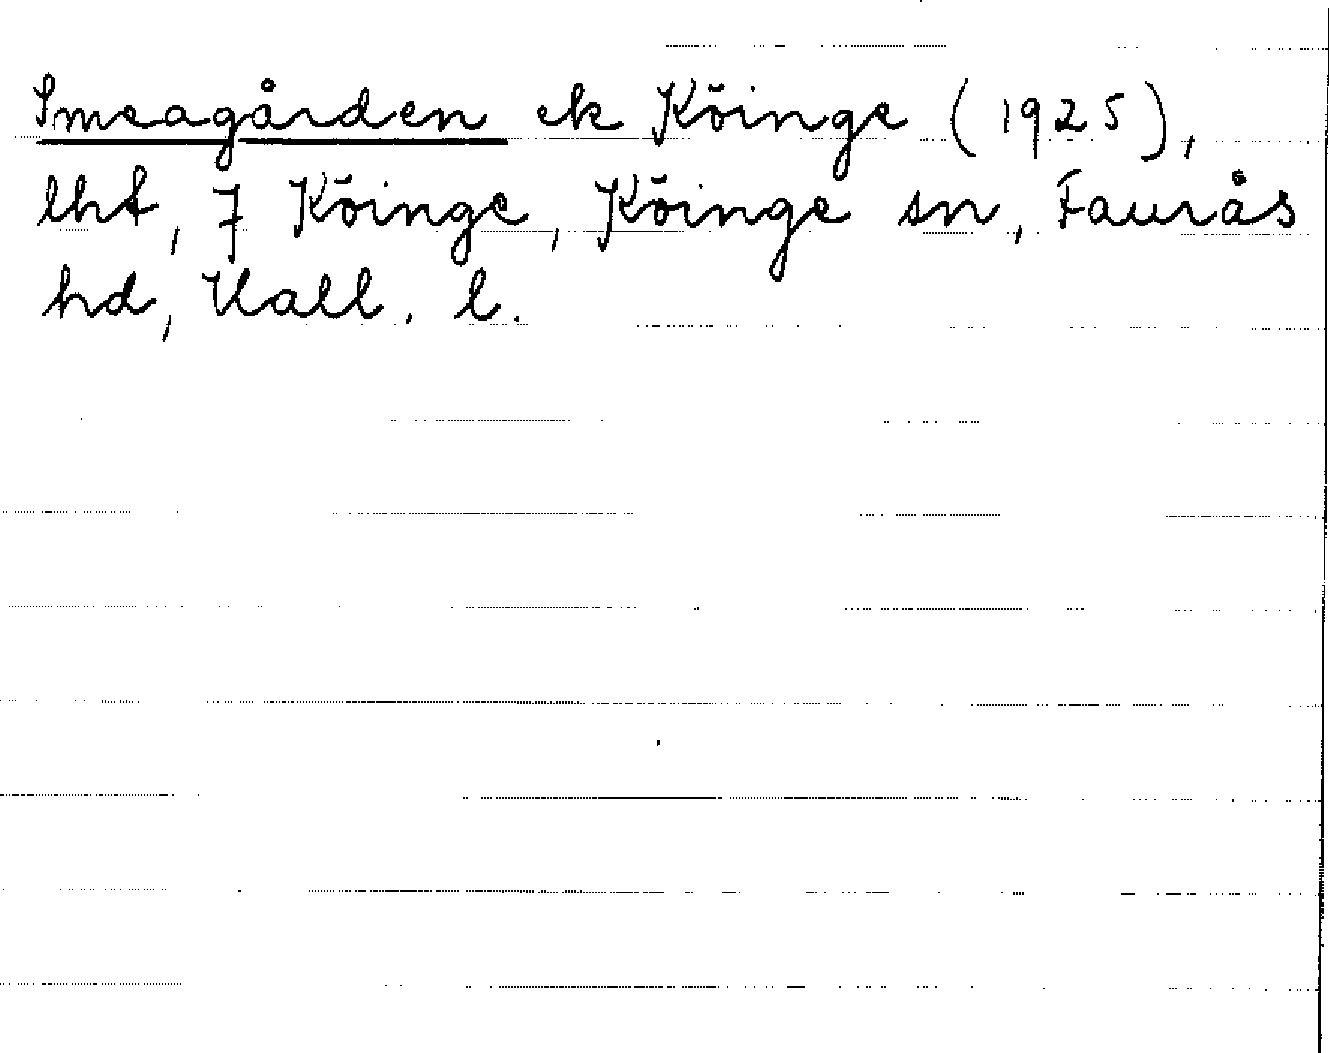 Smeagården ek Köinge (1925),
lht, 7 Köinge, Köinge sn, Faurås
hd, Hall. l.